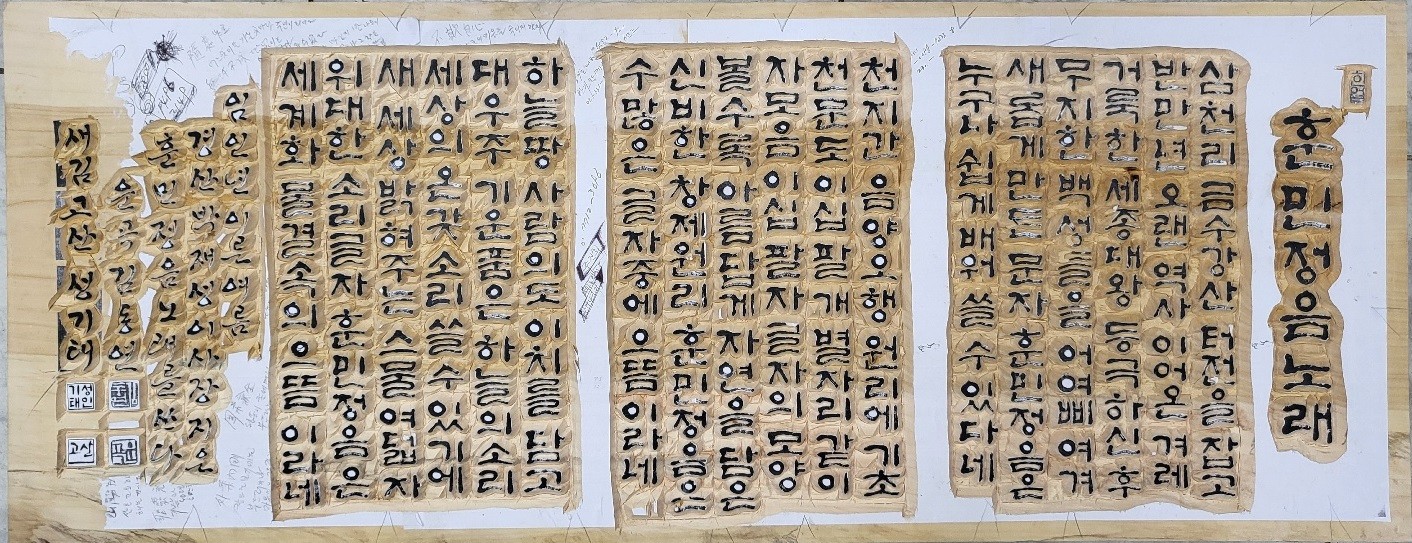 훈민정음 노래
삼천리 금수강산 터전을 잡고
반만년 오랜 역사 이어온 겨레
거룩한 세종대왕 등극하신 후
무지한 백성들을 어여삐 여겨
새롭게 만든 문자 훈민정음을
누구나 쉽게 배워 쓸 수 있다네
천지간 음양오행 원리에 기초
천문도 이십팔 개 별자리 같이
자모음 이십팔자 글자의 모양
볼수록 아름답게 자연을 담은
신비한 창제원리 훈민정음은
수많은 글자 중에 으뜸이라네
하늘 땅 사람의 도 이치를 담고
대우주 기운 품은 하늘의 소리
세상의 온갖 소리 쓸 수 있기에
새 세상 밝혀주는 스물여덟 자
위대한 소리글자 훈민정음은
세계화 물결 속의 으뜸이라네
임인년 이른 여름
경산 박재성 이사장 지은
훈민정음 노래를 쓰다
운곡 김동연
새김 고산 성기태
성기태인
고산